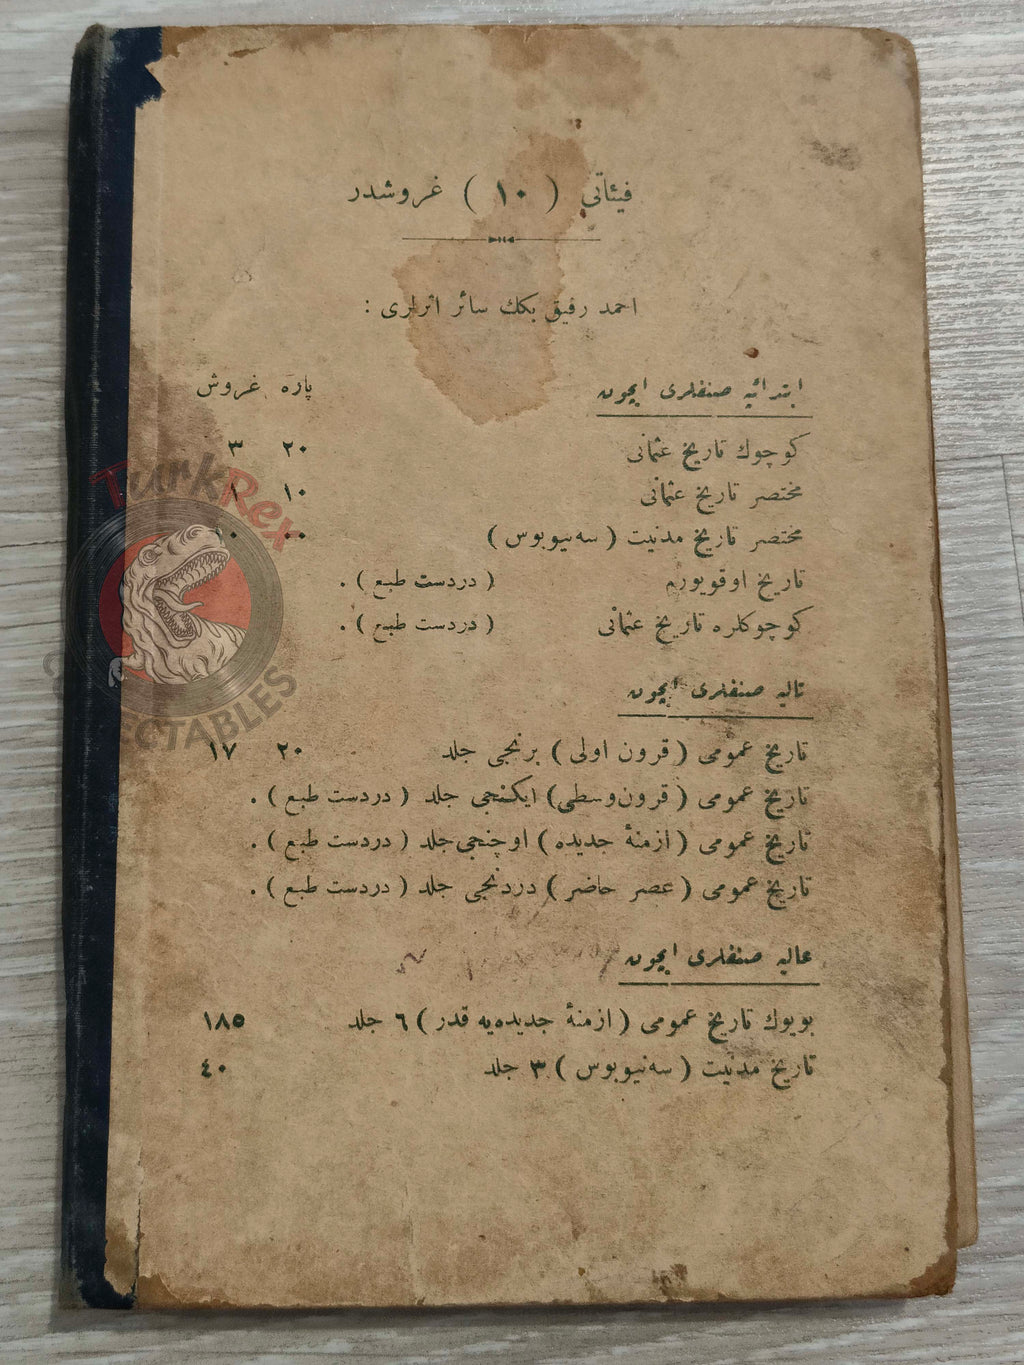 فیئاتی ( ١٠ ) غروشدر
احمد رفیق بكك سائر اثرلری :
ابتدائیه صنفلری ایچون پاره غروش
كوچوك تاریخ عثمانی ٢٠ ٣
مختصر تاریخ عثمانی ١٠ ١
مختصر تاریخ مدنیت ( سه‌نیوبوس ) ٠٠ ١٠
تاریخ اوقویورم ( دردست طبع ) .
كوچوكلره تاریخ عثمانی ( دردست طبع ) .
تالیه صنفلری ایچون
تاریخ عمومی ( قرون اولی ) برنجی جلد ٢٠ ١٧
تاریخ عمومی ( قرون‌وسطی ) ایكنجی جلد ( دردست طبع ) .
تاریخ عمومی ( ازمنهٔ جدیده ) اوچنجی جلد ( دردست طبع ) .
تاریخ عمومی ( عصر حاضر ) دردنجی جلد ( دردست طبع ) .
عالیه صنفلری ایچون
بویوك تاریخ عمومی ( ازمنهٔ جدیده‌یه قدر ) ٦ جلد ١٨٥
تاریخ مدنیت ( سه‌نیوبوس ) ٣ جلد ٤٠
TurkRex